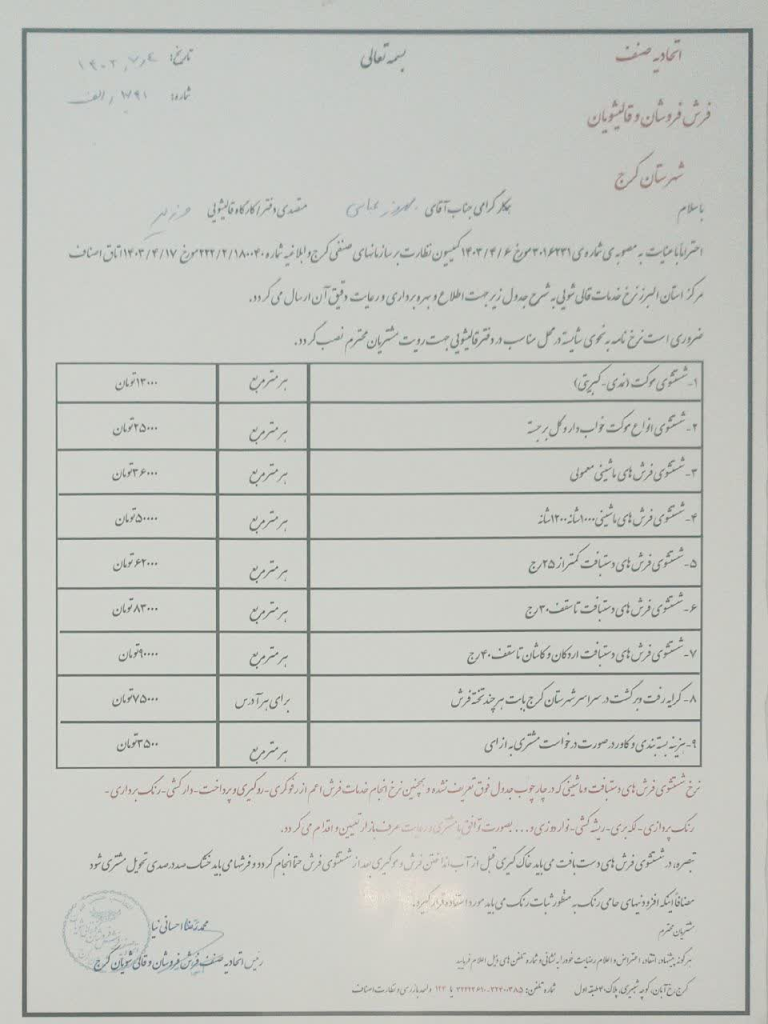 اتحادیه صنف
بسمه تعالی
تاریخ:
فرش فروشان و قالیشویان
شماره: ۳۹۱/الف
شهرستان کرج
باسلام
همکار گرامی جناب آقای متصدی دفتر/کارگاه قالیشویی
احتراما با عنایت به مصوبه ی شماره ی ۳۰۱۶۲۳۱ مورخ ۱۴۰۳/۴/۶ کمیسیون نظارت بر سازمانهای صنفی کرج و ابلاغیه شماره ۲۲۲/۲/۱۸۰۰۴۰ مورخ ۱۴۰۳/۴/۱۷ اتاق اصناف
مرکز استان البرز نرخ خدمات قالی شویی به شرح جدول زیر جهت اطلاع و بهره برداری و رعایت دقیق آن ارسال می گردد.
ضروری است نرخ نامه به نحوی شایسته در محل مناسب در دفتر قالیشویی جهت رویت مشتریان محترم نصب گردد.
۱- شستشوی موکت (نمدی-کبریتی) هر مترمربع ۱۳۰۰۰تومان
۲- شستشوی انواع موکت خواب دار و گل برجسته هر مترمربع ۲۵۰۰۰تومان
۳- شستشوی فرش های ماشینی معمولی هر مترمربع ۳۶۰۰۰تومان
۴- شستشوی فرش های ماشینی ۱۰۰۰شانه ۱۲۰۰شانه هر مترمربع ۵۰۰۰۰تومان
۵- شستشوی فرش های دستبافت کمتر از ۲۵رج هر مترمربع ۶۲۰۰۰تومان
۶- شستشوی فرش های دستبافت تا سقف ۳۰رج هر مترمربع ۸۳۰۰۰تومان
۷- شستشوی فرش های دستبافت اردکان و کاشان تا سقف ۴۰رج هر مترمربع ۹۰۰۰۰تومان
۸- کرایه رفت و برگشت در سراسر شهرستان کرج بابت هر چند تخته فرش برای هر آدرس ۷۵۰۰۰تومان
۹- هزینه بسته بندی و کاور در صورت درخواست مشتری به ازای هر مترمربع ۳۵۰۰تومان
نرخ شستشوی فرش های دستبافت و ماشینی که در چارچوب جدول فوق تعریف نشده و همچنین نرخ انجام خدمات فرش اعم از رفوگری-روگیری و پرداخت-دارکشی-رنگ برداری-
رنگ پردازی-لکه بری-ریشه کشی-نوار دوزی و... بصورت توافق با مشتری و رعایت عرف بازار تعیین و اقدام می گردد.
تبصره: در شستشوی فرش های دست بافت می باید خاک گیری قبل از آب انداختن فرش و بعد از شستشوی فرش حتما انجام گردد و فرشها می باید خشک صددرصدی تحویل مشتری شود
مضافا اینکه افزودنیهای حامی رنگ به منظور ثبات رنگ می باید مورد استفاده قرار گیرد.
مشتریان محترم
محمدرضا احسانی نیا
هرگونه پیشنهاد، انتقاد، اعتراض و اعلام رضایت خود را به نشانی و شماره تلفن های ذیل اعلام فرمایید
رئیس اتحادیه صنف فرش فروشان و قالی شویان کرج
کرج، پلاک ۴، طبقه اول شماره تلفن: یا ۱۲۴ واحد بازرسی و نظارت اصناف